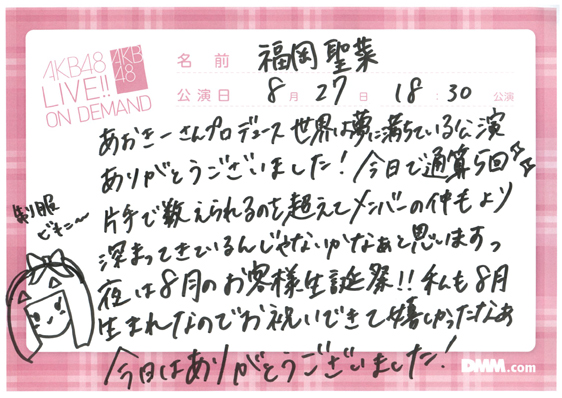 AKB48
LIVE!!
ON DEMAND
AKB
48
名前 福岡聖菜
公演日 8月27日 18:30公演
あおきーさんプロデュース世界は夢に満ちている公演
ありがとうございました！今日で通算5回☆☆
片手で数えられるのを超えてメンバーの仲もより
深まってきているんじゃないかなぁと思いますっ
夜は8月のお客様生誕祭!!私も8月
生まれなのでお祝いできて嬉しかったなぁ
今日はありがとうございました！
制服
どもこ〜
DMM.com